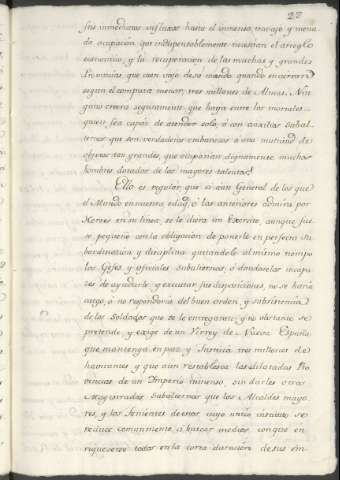 27
sus inmediatos influxos hasta el inmenso trabajo y menu
da ocupacion que indispensablemente necesitan el arreglo
economico, y la recuperacion de las muchas y grandes
Provincias que caen vajo de su mando quando encierran
segun el computo menor, tres millones de Almas. Nin
guno creera seguramente que haya entre los mortales
quien sea capaz de atender solo, ó con auxiliar Subal
ternos que son verdaderos embarazos á una multitud de
objetos tan grandes, que ocuparian dignamente muchos
hombres dotados de los mayores talentos.
Ello es regular que si aun General de los que
el Mundo en nuestra edad, ó las anteriores admira por
Heroes en su linea, se le diera un Exercito, aunque fue
se pequeño con la obligacion de ponerle en perfecta su
bordinacion y diciplina quitandole al mismo tiempo
los Gefes y oficiales subalternos, ó dandoselos incapa
ces de ayudarle y executar sus disposiciones, no se haria
cargo, ó no responderia del buen orden y subsistencia
de los Soldados que se le entregaran; y no obstante se
pretende y exige de un Virrey de Nueva España
que mantenga en paz y Justicia tres millones de
havitantes y que aun restablesca las dilatadas Pro
vincias de un Imperio inmenso, sin darles otros
Asegurados subalternos que los Alcaldes mayo
res, y los Tenientes de estos cuyo unico instituto se
reduce comunmente á buscar medios, conque en
riquezerse todos en la corta duracion de sus em